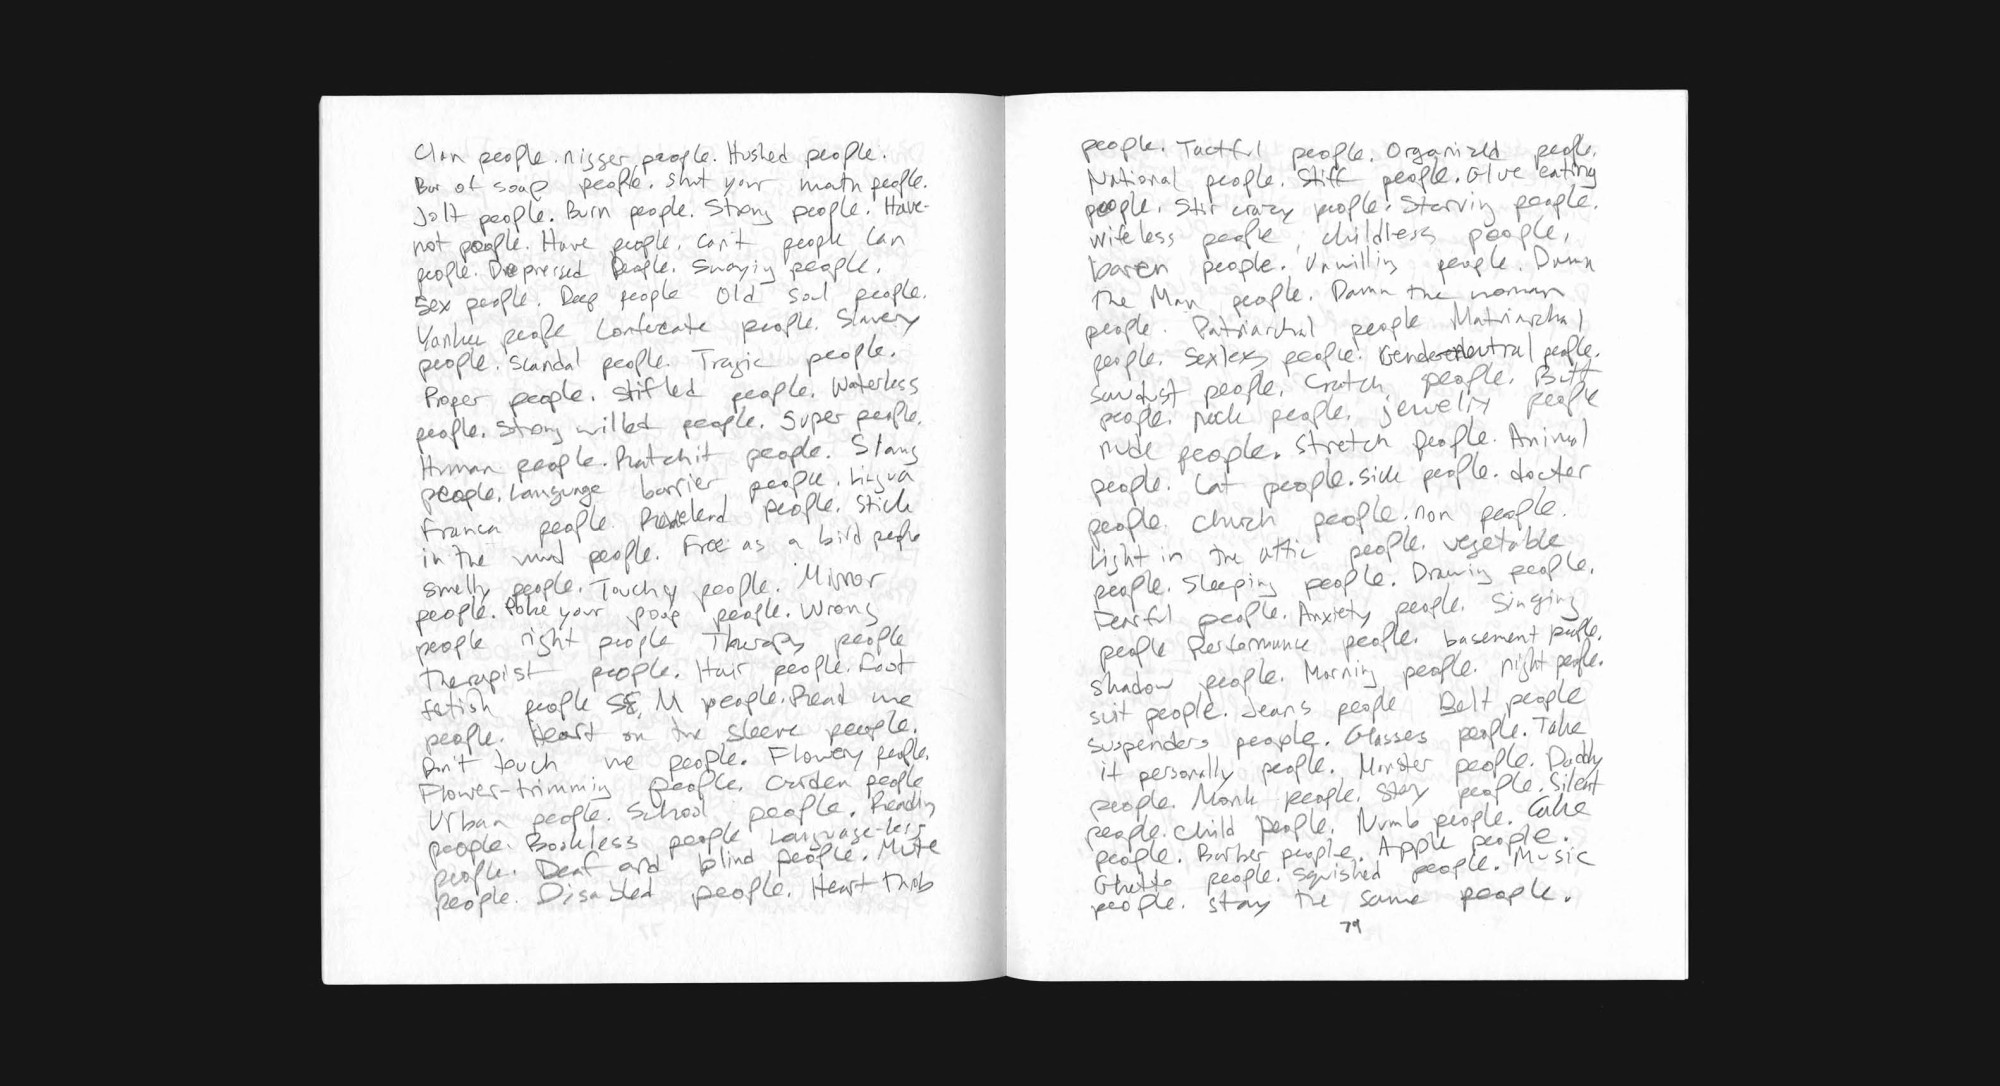 Clan people. nigger people. Hushed people.
Bar of soap people. Shut your mouth people.
Jolt people. Burn people. Strong people. Have-
not people. Have people. Can't people Can
people. Depressed people. Swaying people.
Sex people. Deep people Old soul people.
Yankee people Confederate people. Slavery
people. Scandal people. Tragic people.
Proper people. Stifled people. Waterless
people. Strong willed people. Super people.
Human people. Ratchit people. Slang
people. Language barrier people. Lingua
Franca people. people. Stick
in the mud people. Free as a bird people
smelly people. Touchy people. Mirror
people. Poke your poop people. Wrong
people right people Therapy people
therapist people. Hair people. Foot
fetish people S&M people. Read me
people. Heart on the sleeve people.
Don't touch me people. Flowery people.
Flower-trimming people. Garden people
Urban people. School people. Reading
people. Bookless people Language-less
people. Deaf and blind people. Mute
people. Disabled people. Heart throb
people. Tactful people. Organized people.
National people. Stiff people. Glue eating
people. Stir crazy people. Starving people.
wifeless people, childless people,
baren people. Unwilling people. Damn
the Man people. Damn the woman
people. Patriarchal people Matriarchal
people. Sexless people. Genderneutral people.
sawdust people. Crotch people. Butt
people. Neck people. jewelry people
nude people. Stretch people. Animal
people. Cat people. Sick people. docter
people. Church people. non people.
Light in the attic people. vegetable
people. Sleeping people. Drawing people.
Fearful people. Anxiety people. Singing
people Performance people. basement people.
shadow people. Morning people. night people.
suit people. Jeans people Belt people
suspenders people. Glasses people. Take
it personally people. Monster people. Daddy
people. Monk people. Stay people. Silent
people. Child people. Numb people. Cake
people. Barber people. Apple people.
Ghetto people. Squished people. Music
people. Stay the same people.
79